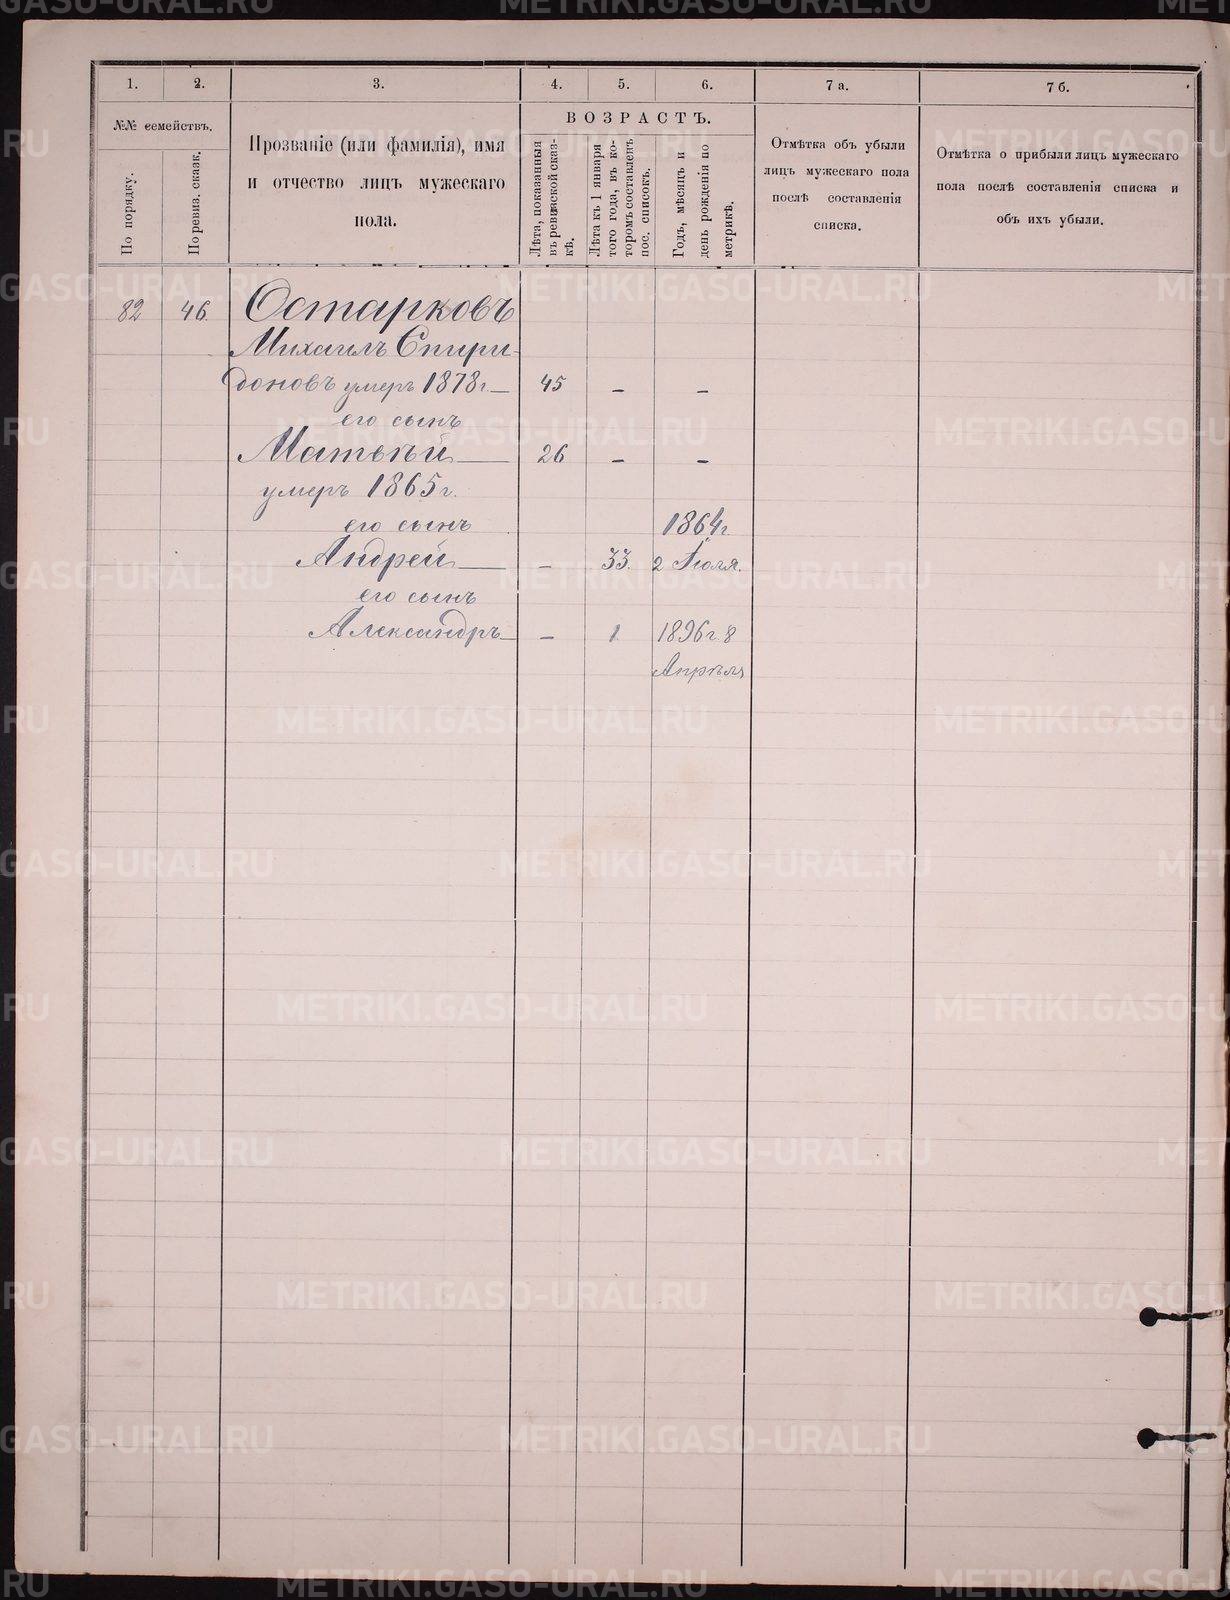 1. 2. 3. 4. 5. 6. 7 а. 7 б.
№№ семействъ.
По порядку.
По ревиз. сказк.
Прозваніе (или фамилія), имя
и отчество лицъ мужескаго
пола.
ВОЗРАСТЪ.
Лѣта, показанныя
въ ревизской сказ-
кѣ.
Лѣта къ 1 января
того года, въ ко-
торомъ составленъ
пос. списокъ.
Годъ, мѣсяцъ и
день рожденія по
метрикѣ.
Отмѣтка объ убыли
лицъ мужескаго пола
послѣ составленія
списка.
Отмѣтка о прибыли лицъ мужескаго
пола послѣ составленія списка и
объ ихъ убыли.
82 46. Остарковъ
Михаилъ Спири-
доновъ умеръ 1878 г. — 45 — —
его сынъ
Матвѣй — 26 — —
умеръ 1865 г.
его сынъ 1864 г.
Андрей — — 33. 2 Іюля.
его сынъ
Александръ — — 1 1896 г. 8
Апрѣля
METRIKI.GASO-URAL.RU